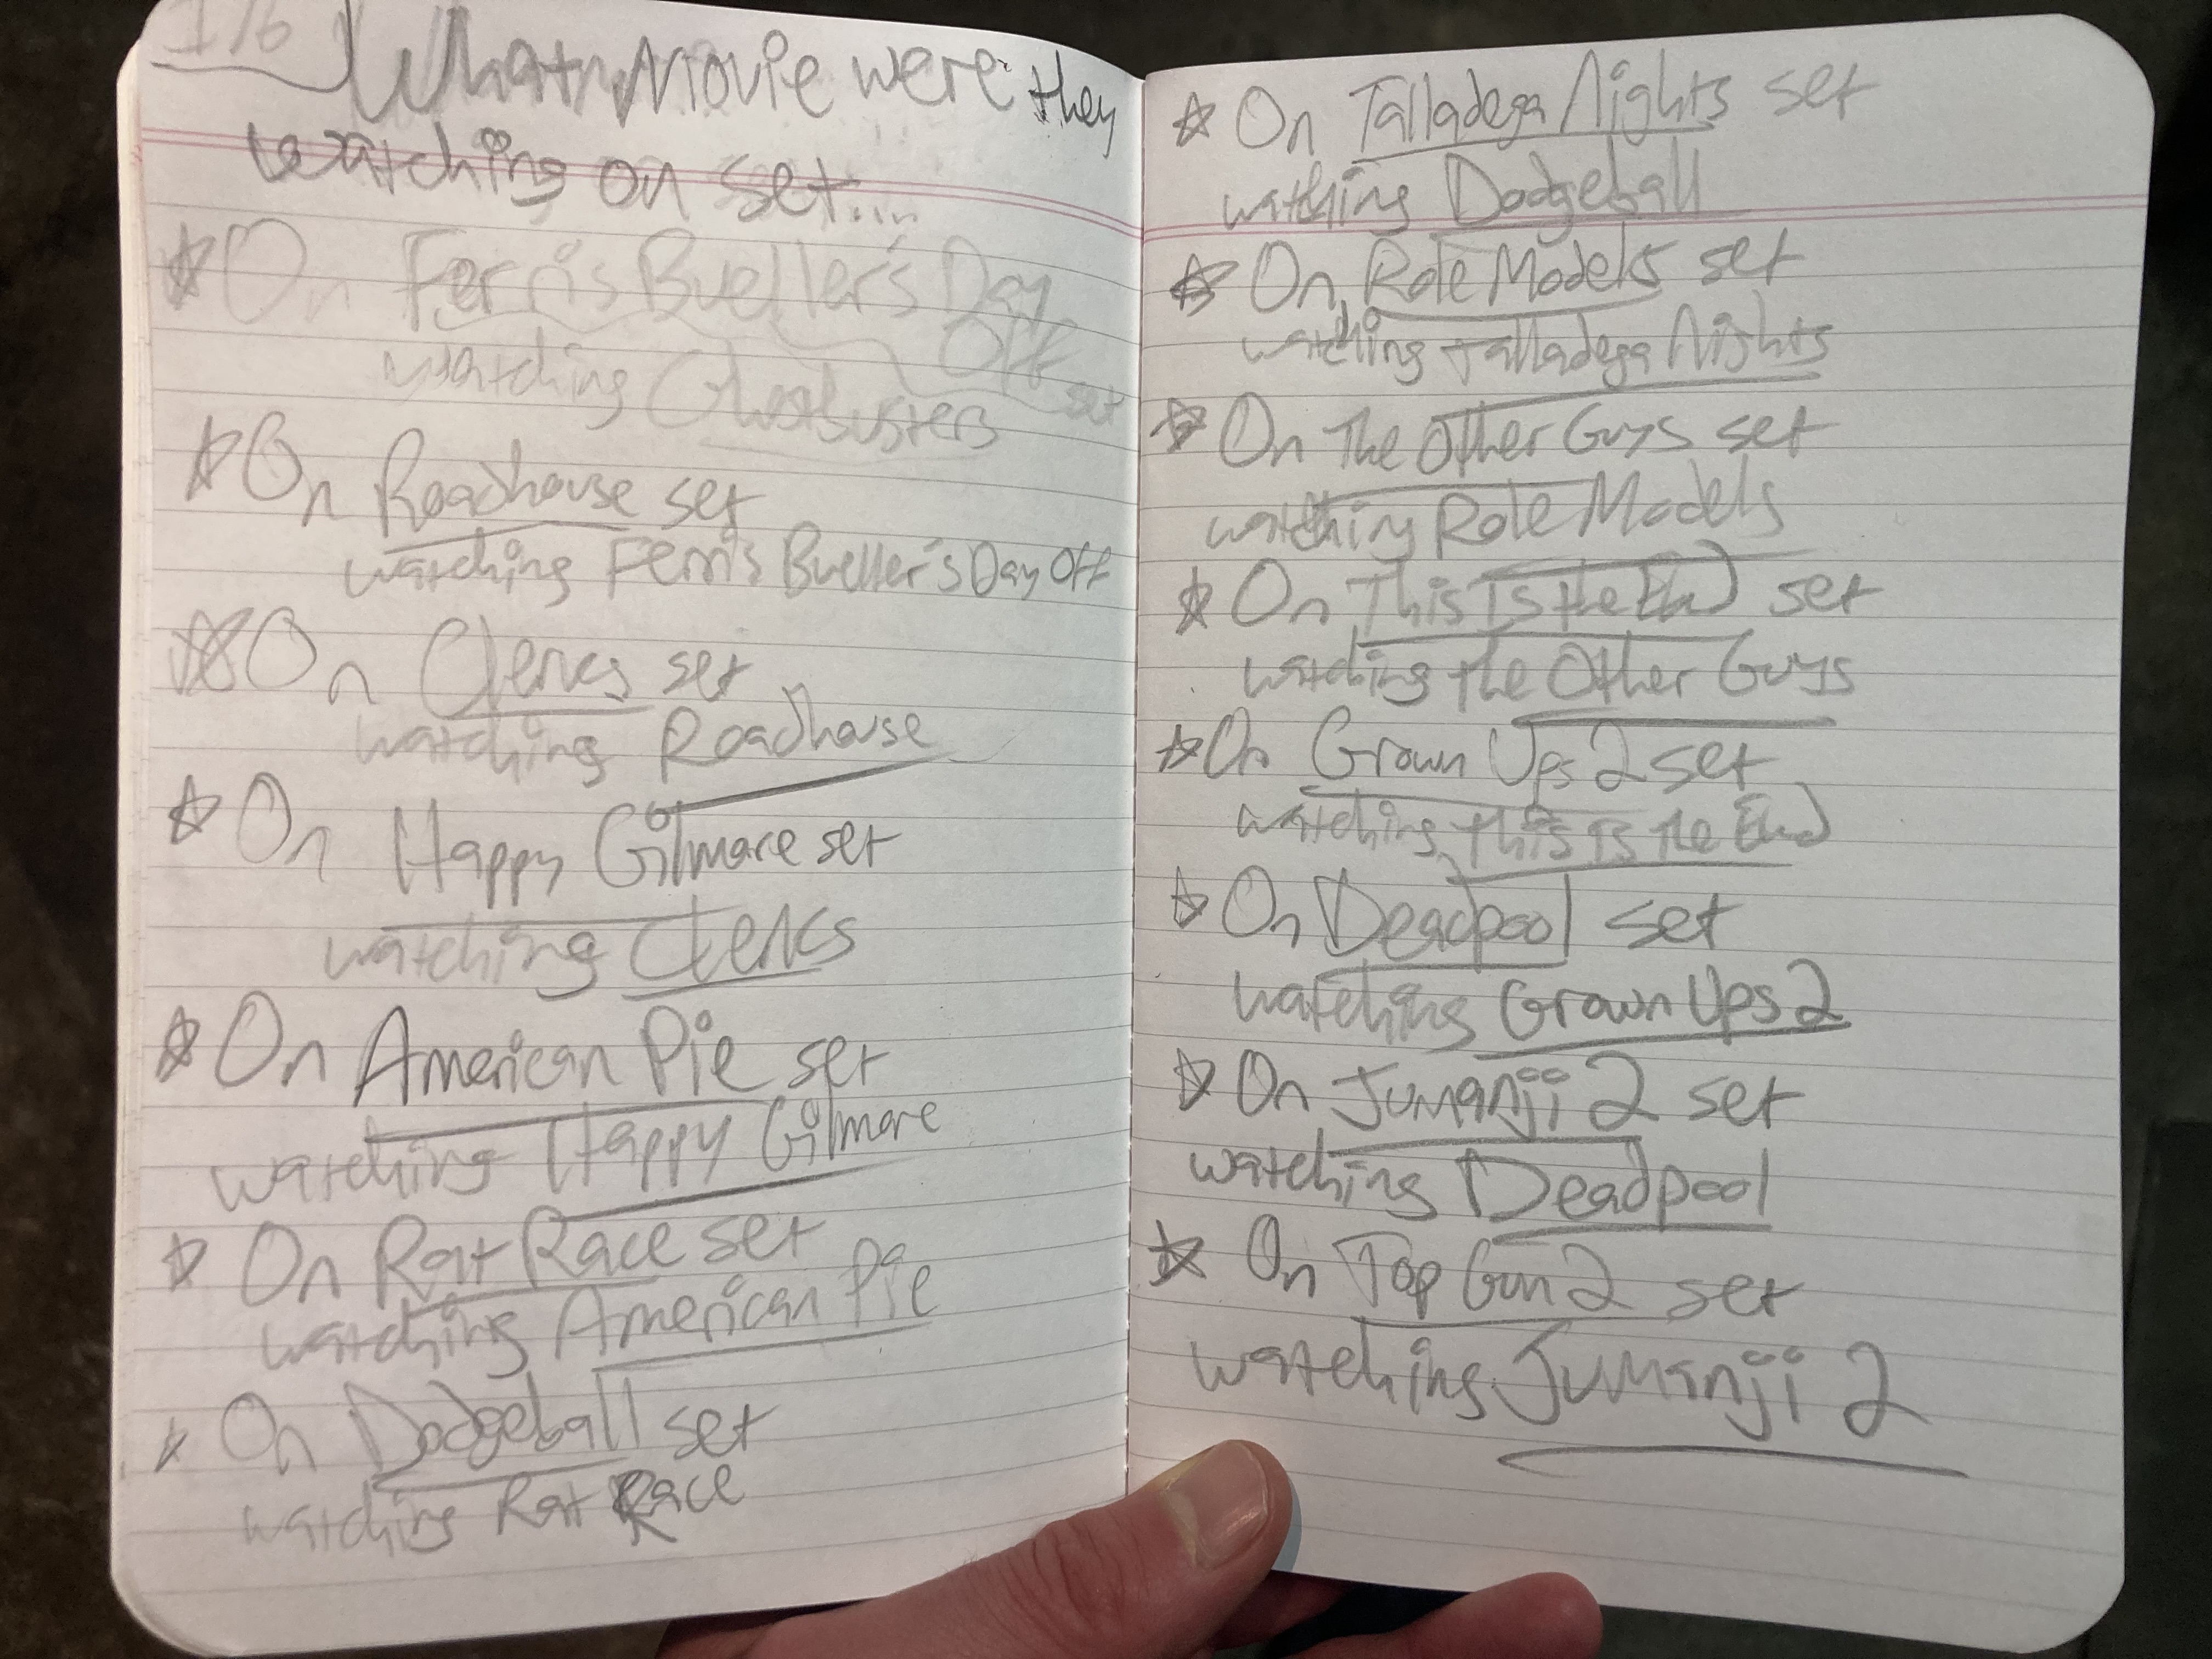 1/6 What Movie were they
watching on set....
☆ On Ferris Bueller's Day
Off set
watching Ghostbusters
☆ On Roadhouse set
watching Ferris Bueller's Day Off
☆ On Clerks set
watching Roadhouse
☆ On Happy Gilmore set
watching Clerks
☆ On American Pie set
watching Happy Gilmore
☆ On Rat Race set
watching American Pie
☆ On Dodgeball set
watching Rat Race
☆ On Talladega Nights set
watching Dodgeball
☆ On Role Models set
watching Talladega Nights
☆ On The Other Guys set
watching Role Models
☆ On This Is the End set
watching the Other Guys
☆ On Grown Ups 2 set
watching This Is the End
☆ On Deadpool set
watching Grown Ups 2
☆ On Jumanji 2 set
watching Deadpool
☆ On Top Gun 2 set
watching Jumanji 2